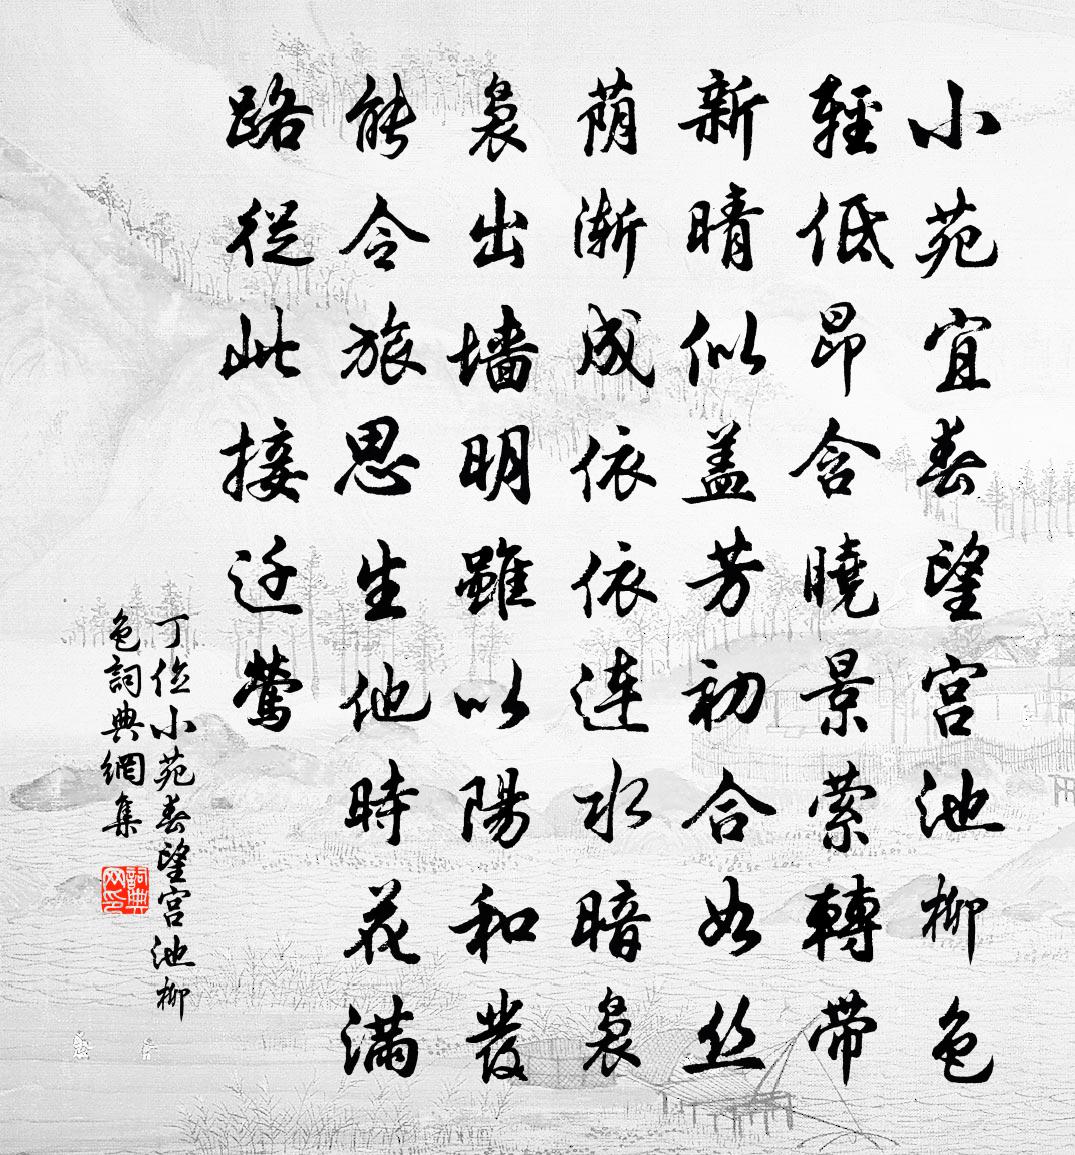 小苑宜春望宫池柳色
輕低昂含曉景萦轉带
新晴似盖芳初合如丝
荫渐成依依连水暗袅
袅出墙明雖以陽和發
能令旅思生他時花满
路從此接迁鶯
丁位小苑春望宫池柳
色詞典網集
詞典网印